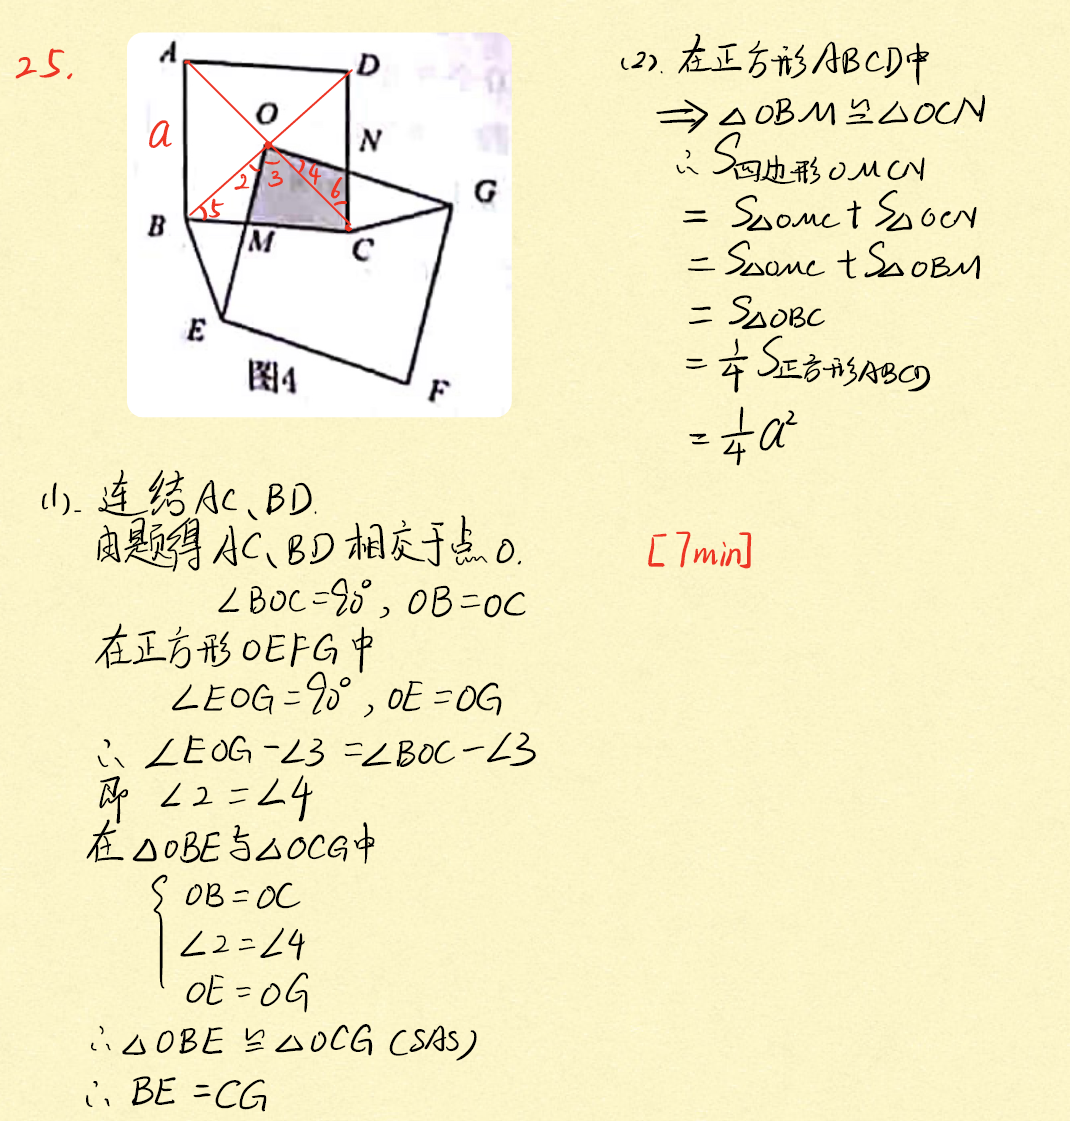 25.
A
D
a
O
N
2
3
4
6
G
5
B
M
C
E
F
图4
(1). 连结AC、BD.
由题得AC、BD相交于点O.
∠BOC=90°, OB=OC
在正方形OEFG中
∠EOG=90°, OE=OG
∴ ∠EOG-∠3=∠BOC-∠3
即 ∠2=∠4
在△OBE与△OCG中
{ OB=OC
∠2=∠4
OE=OG
∴△OBE≌△OCG (SAS)
∴ BE=CG
(2). 在正方形ABCD中
⇒△OBM≌△OCN
∴S四边形OMCN
= S△OMC+S△OCN
= S△OMC+S△OBM
= S△OBC
= 1/4 S正方形ABCD
= 1/4 a²
[7min]